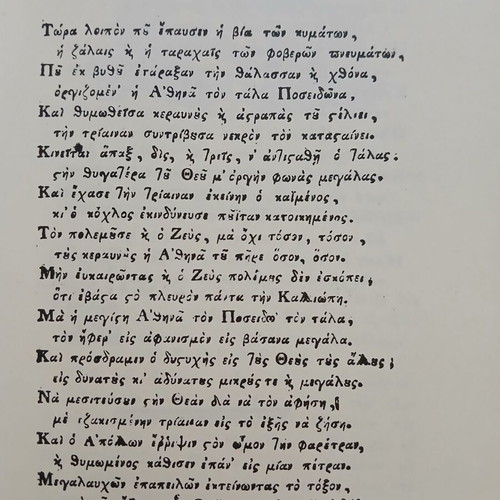 Τώρα λοιπὸν ποῦ ἔπαυσεν ἡ βία τῶν κυμάτων,
ἡ ζάλαις κὶ ἡ ταραχαῖς τῶν φοβερῶν πνευμάτων,
Ποῦ ἐκ βυθοῦ ἐτάραξαν τὴν θάλασσαν κὶ χθόνα,
ὀργιζομέν' ἡ Ἀθηνᾶ τὸν τάλα Ποσειδῶνα,
Καὶ θυμωθεῖσα κεραυνοὺς κὶ ἀστραπὰς τοῦ στέλλει,
τὴν τρίαιναν συντρίβουσα νεκρὸν τὸν κατασταίνει.
Κινεῖται ἅπαξ, δὶς, κὶ τρὶς, ν' ἀντισταθῇ ὁ τάλας
στὴν θυγατέρα τοῦ Θεοῦ μ' ὀργὴν φωνὰς μεγάλας.
Καὶ ἔχασε τὴν τρίαιναν ἐκείνην ὁ καϊμένος,
κι' ὁ κόχλος ἐκινδύνευσε ποῦ ἦταν κατοικημένος.
Τὸν πολεμοῦσε κὶ ὁ Ζεὺς, μὰ ὄχι τόσον, τόσον,
τοὺς κεραυνοὺς ἡ Ἀθηνᾶ τοῦ πῆρε ὅσον, ὅσον.
Μὴν εὐκαιρῶντας κὶ ὁ Ζεὺς πολέμους δὲν ἐσκόπει,
ὅτι ἐβάστα στὸ πλευρὸν πάντα τὴν Καλλιόπη.
Μὰ ἡ μεγίστη Ἀθηνᾶ τὸν Ποσειδῶ τὸν τάλα,
τὸν ἤφερ' εἰς ἀφανισμὸν εἰς βάσανα μεγάλα.
Καὶ πρόσδραμεν ὁ δυστυχὴς εἰς τοὺς Θεοὺς τοὺς ἄλλους
εἰς δυνατοὺς κι' ἀδύνατους μικρούς τε κὶ μεγάλους.
Νὰ μεσιτεύσουν τὴν Θεὰν διὰ νὰ τὸν ἀφήσῃ,
μὲ τζακισμένην τρίαιναν εἰς τὸ ἑξῆς νὰ ζήσῃ.
Καὶ ὁ Ἀπόλλων ἔρριψεν στὸν ὦμον τὴν φαρέτραν,
κὶ θυμωμένος κάθισεν ἐπάν' εἰς μίαν πέτραν.
Μεγαλαυχῶν ἐπαπειλῶν ἐκτείνωντας τὸ τόξον,